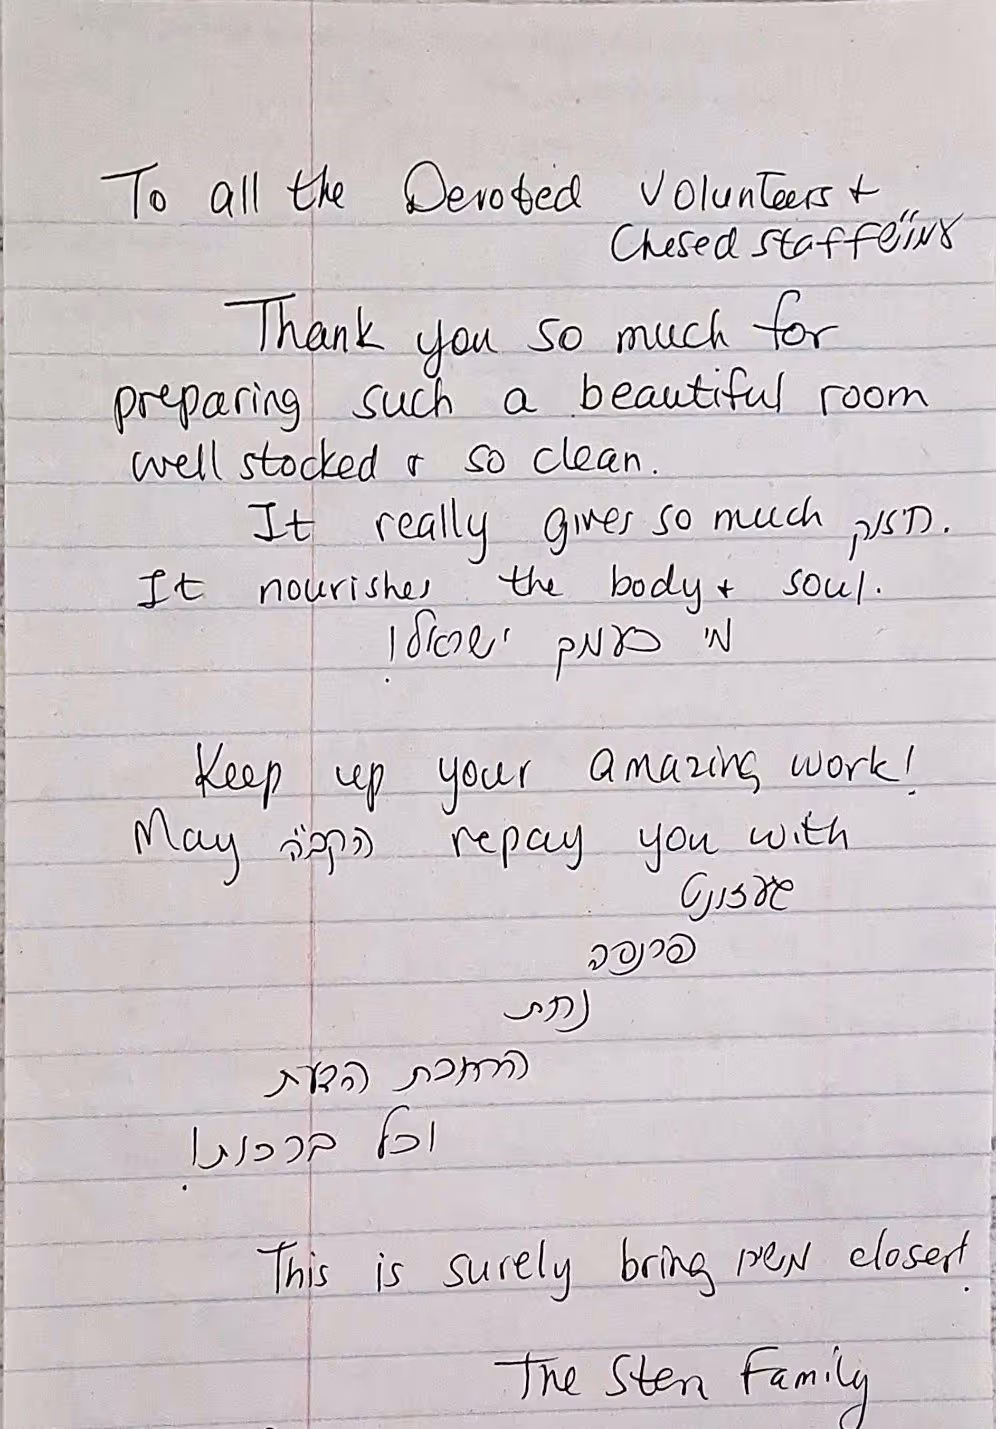 To all the Devoted Volunteers +
Chesed staff עמו״ש
Thank you so much for
preparing such a beautiful room
well stocked & so clean.
It really gives so much חזוק.
It nourishes the body + soul.
מי כעמך ישראל!
Keep up your amazing work!
May הקב״ה repay you with
געזונט
פרנסה
נחת
הרחבת הדעת
וכל ברכות!
This is surely bring משיח closer!
The Sten Family